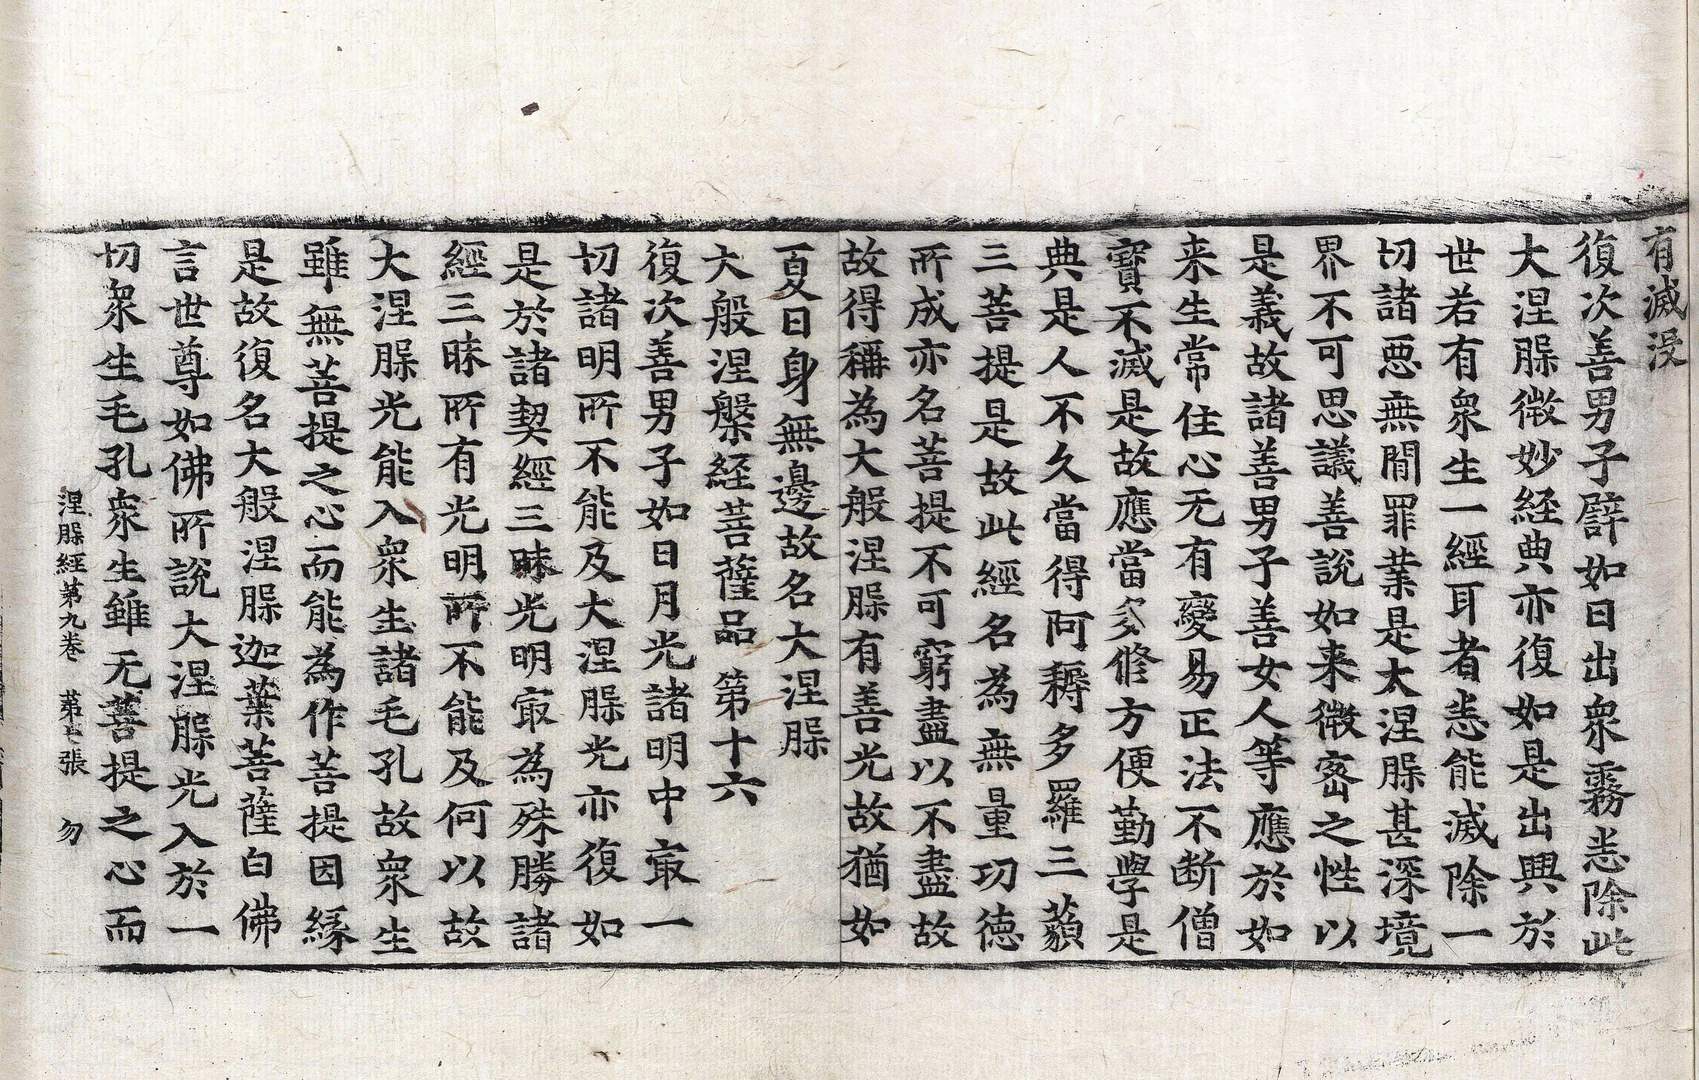 有滅没
復次善男子譬如日出衆霧悉除此
大涅槃微妙経典亦復如是出興於
世若有衆生一經耳者悉能滅除一
切諸惡無間罪業是大涅槃甚深境
界不可思議善說如来微宻之性以
是義故諸善男子善女人等應於如
来生常住心无有變易正法不断僧
寶不滅是故應當多修方便勤學是
典是人不久當得阿耨多羅三藐
三菩提是故此經名為無量功徳
所成亦名菩提不可窮盡以不盡故
故得稱為大般涅槃有善光故猶如
夏日身無邊故名大涅槃
大般涅槃経菩薩品 第十六
復次善男子如日月光諸明中㝡一
切諸明所不能及大涅槃光亦復如
是於諸契經三昧光明㝡為殊勝諸
經三昧所有光明所不能及何以故
大涅槃光能入衆生諸毛孔故衆生
雖無菩提之心而能為作菩提因縁
是故復名大般涅槃迦葉菩薩白佛
言世尊如佛所說大涅槃光入於一
切衆生毛孔衆生雖无菩提之心而
涅槃經第九卷 第 張 勿